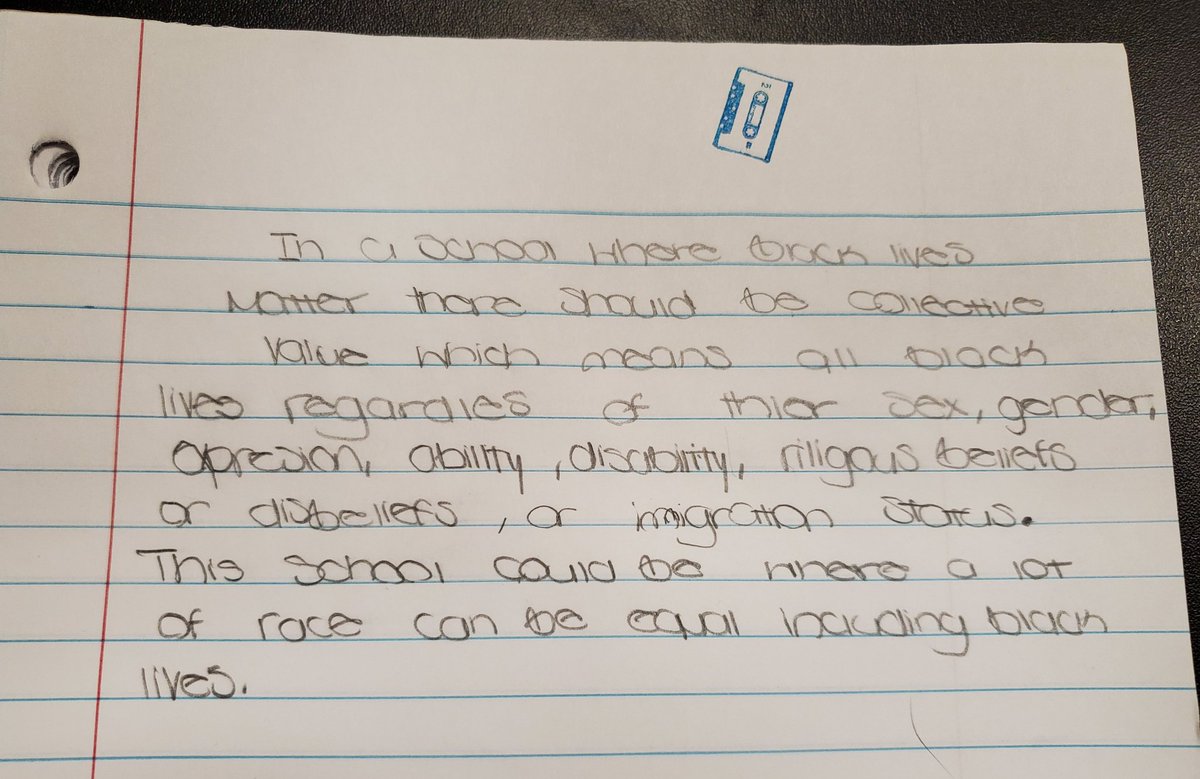 In a School Where black lives
Matter there should be collective
Value which means all black
lives regardles of thier sex, gender,
opresion, ability, disability, riligous beliefs
or disbeliefs, or imigration status.
This school could be where a lot
of race can be equal including black
lives.